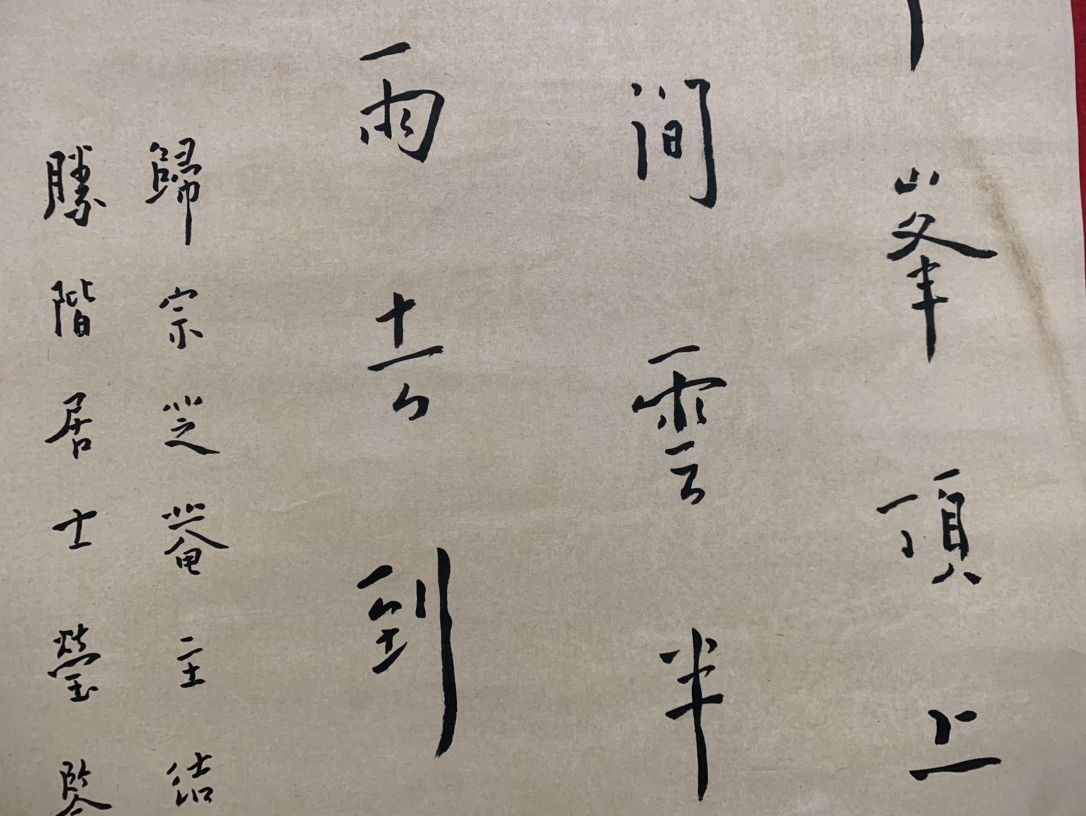 峯頂上
間雲半
雨去到
歸宗芝菴主
勝階居士瑩